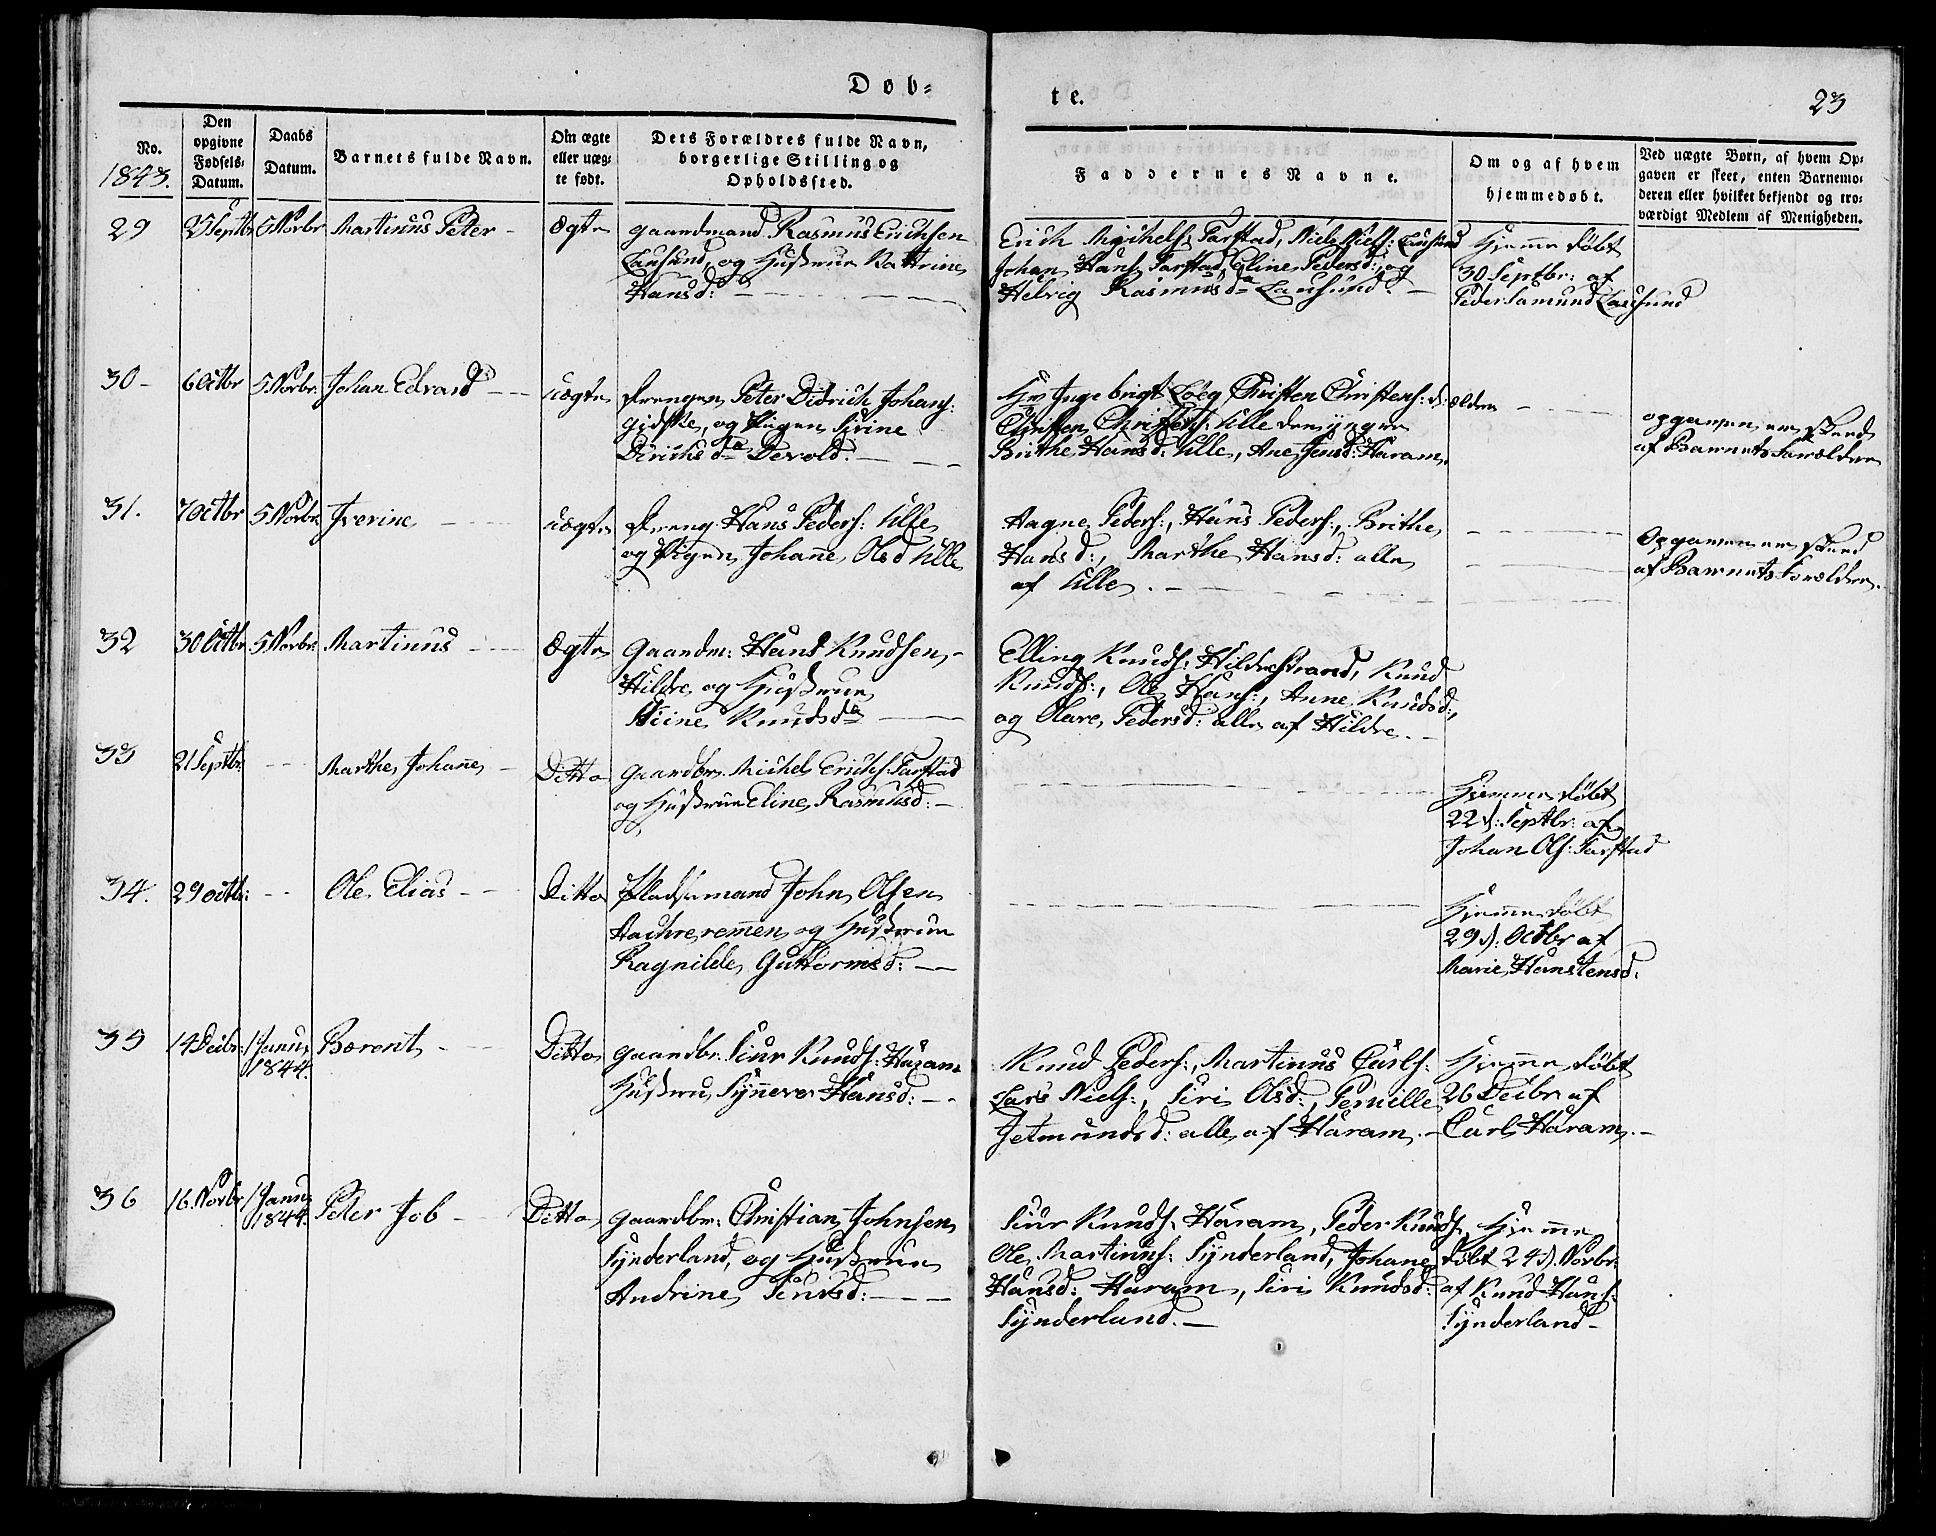 Døb=
te.
23
No.
1843.
Den
opgivne
Fødsels-
Datum.
Daabs
Datum.
Barnets fulde Navn.
Om ægte
eller uæg-
te født.
Dets Forældres fulde Navn,
borgerlige Stilling og
Opholdssted.
Faddernes Navne.
Om og af hvem
hjemmedøbt.
Ved uægte Børn, af hvem Op-
gaven er skeet, enten Barnemo-
deren eller hvilket bekjendt og tro-
værdigt Medlem af Menigheden.
29
25 Septbr
5 Novbr
Martinus Peter -
Ægte
Gaardmand Rasmus Erichsen
Lausund, og Hustrue Kattrine
Hansd:
Erich Michels: Tarstad, Niels Niels: Lausund
Johan Hans: Tarstad, Eline Pedersd:, og
Helvig Rasmusda Lausund. -
Hjemme døbt
30 Septbr: af
Peder Samund Lausund
30 -
6 Octbr
5 Novbr.
Johan Edvard
uægte
Drengen Peter Didrich Johans:
Gidske, og Pigen Sirine
Dirichsda Devold. -
Hr Ingebrigt Løeg Christen Christens: d: ælden
Christen Christens: Ulle den yngre
Brithe Hansd: Ulle, Ane Jensd: Haram.
opgaven er skeed
af Barnets Forældre
31.
7 Octbr
5 Novbr.
Iverine
uægte
Dreng Hans Peders: Ulle
og Pigen Johane Olsd Ulle
Aagne Peders:, Hans Peders:, Brithe
Hansd:, Marthe Hansd: alle
af Ulle. -
Opgaven er skeed
af Barnets Forældre.
32
30 Octbr.
5 Novbr:
Martinus
Ægte
Gaardm: Hans Knudsen, -
Hildre og Hustrue
Stine Knudsda
Elling Knuds: Hildrestrand, Knud
Knuds:, Ole Hans:, Anne Knudsd:,
og Olave Pedersd: alle af Hildre. -
33
21 Septbr:
Marthe Johane -
Ditto
Gaardbr. Michel Erichs: Tarstad
og Hustrue Eline Rasmusd: -
Hjemme døbt
22d: Septbr: af
Johan Ols: Tarstad
34.
29 Octb:
Ole Elias
Ditto
Pladsemand John Olsen
Hachreremen og Hustrue
Ragnilde Guttormsd: -
Hjemme døbt
29d. Octbr af
Marie Hanstensd:
35
14 Decbr:
1 Janu,
1844.
Berent
Ditto
Gaardbr: Siur Knuds: Haram
Hustru, Synneve Hansd: -
Knud Peders:, Martinus Carls:
Lars Niels:, Siri Olsd:, Pernille
Jetmundsd: alle af Haram. -
Hjemme døbt
26 Decbr af
Carl Haram. -
36
16. Novbr
1 Janu,
1844.
Peter Job
Ditto
Gaardbr: Christian Johnsen
Synderland, og Hustrue
Andrine Siursd: -
Siur Knuds: Haram, Peder Knuds:,
Ole Martinus: Synderland, Johane
Hansd: Haram, Siri Knudsd:
Synderland. -
Hjemme
døbt 24d. Novbr.
af Knud Hans:
Synderland -